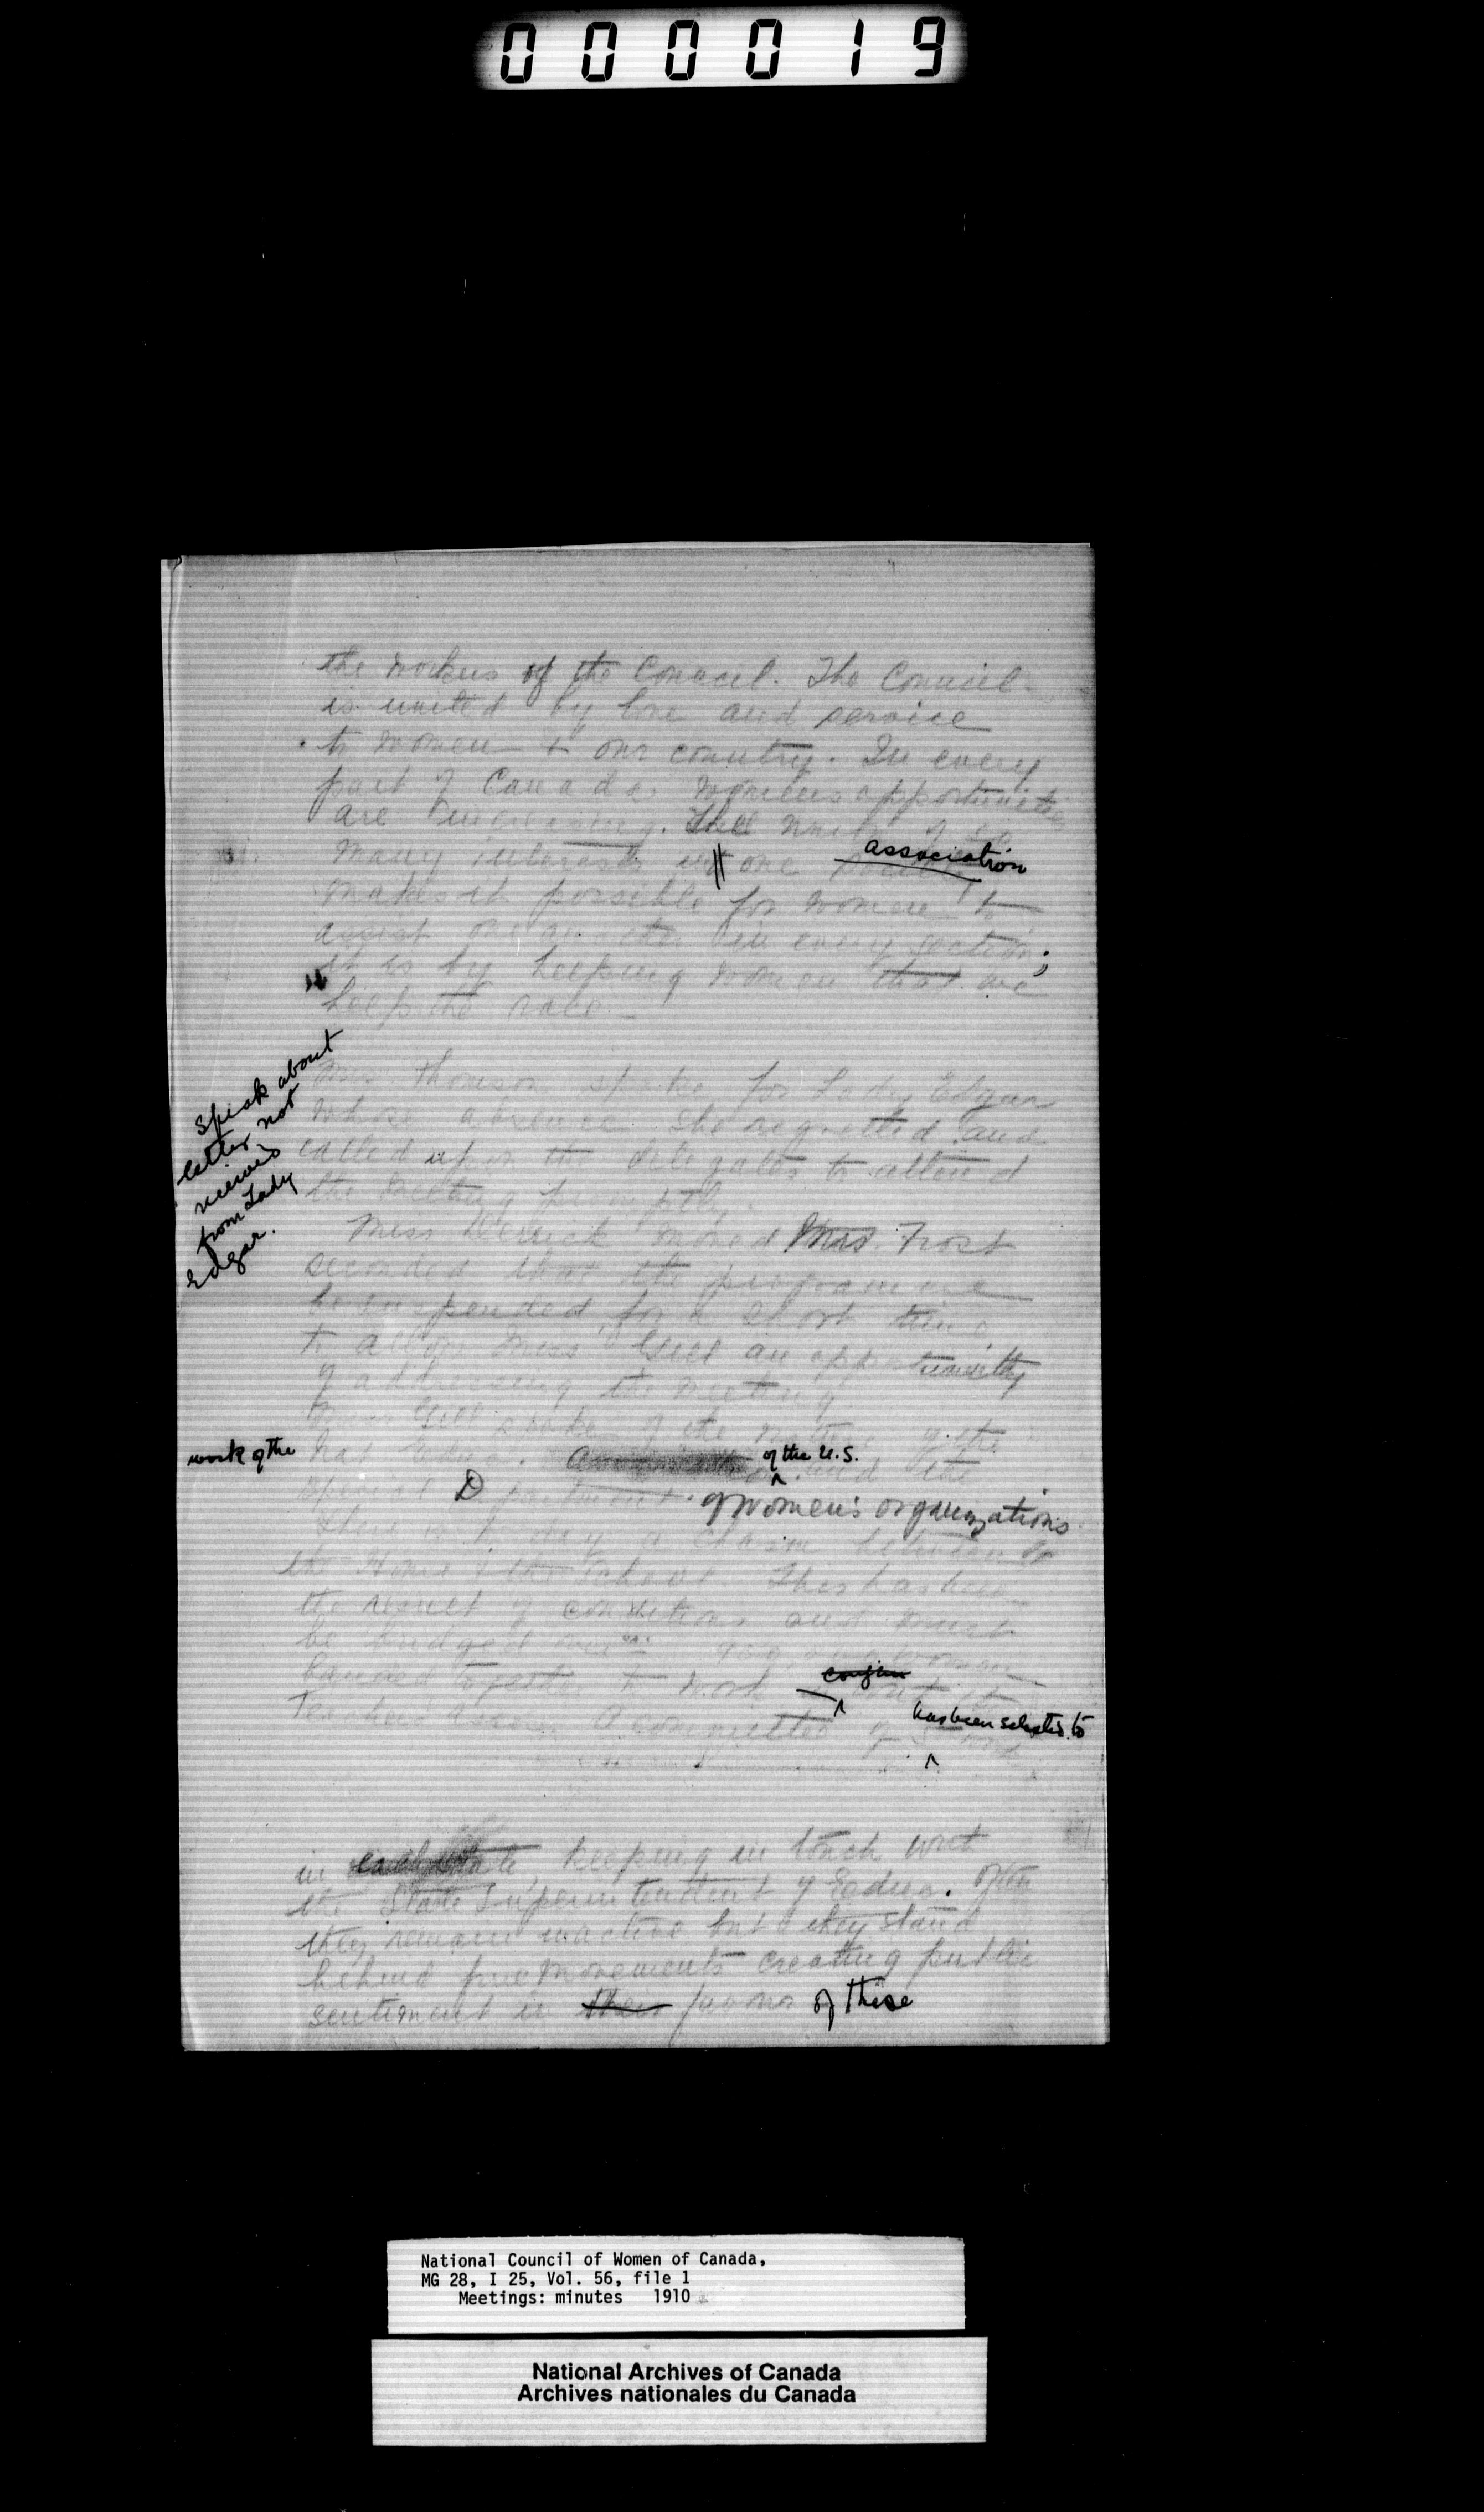 000019
the workers of the Council. The Council
is united by love and service
to women + our country. In every
part of Canada womens opportunities
are increasing. The union of so
many interests in one society association
makes it possible for women to
assist one another in every section;
it is by helping women that we
help the race.
Speak about
letter not
received
from Lady
Edgar.
Mrs. Thomson spoke for Lady Edgar
whose absence she regretted and
called upon the delegates to attend
the meeting promptly.
Miss Derick moved Mrs. Frost
seconded that the programme
be suspended for a short time
to allow Miss Gill an opportunity
of addressing the meeting.
Miss Gill spoke of the nature of the
work of the Nat Educ. Association of the U.S. and the
special Department of Women's organizations.
There is to day a chasm between
the Home & the School. This has been
the result of conditions and must
be bridged over women
banded together to work
Teachers Assoc. A committee of 5 has been selected to work
in each state, keeping in touch with
the State Superintendent of Educ. Often
they remain inactive but they stand
behind fine movements creating public
sentiment in their favour of these
National Council of Women of Canada,
MG 28, I 25, Vol. 56, file 1
Meetings: minutes 1910
National Archives of Canada
Archives nationales du Canada